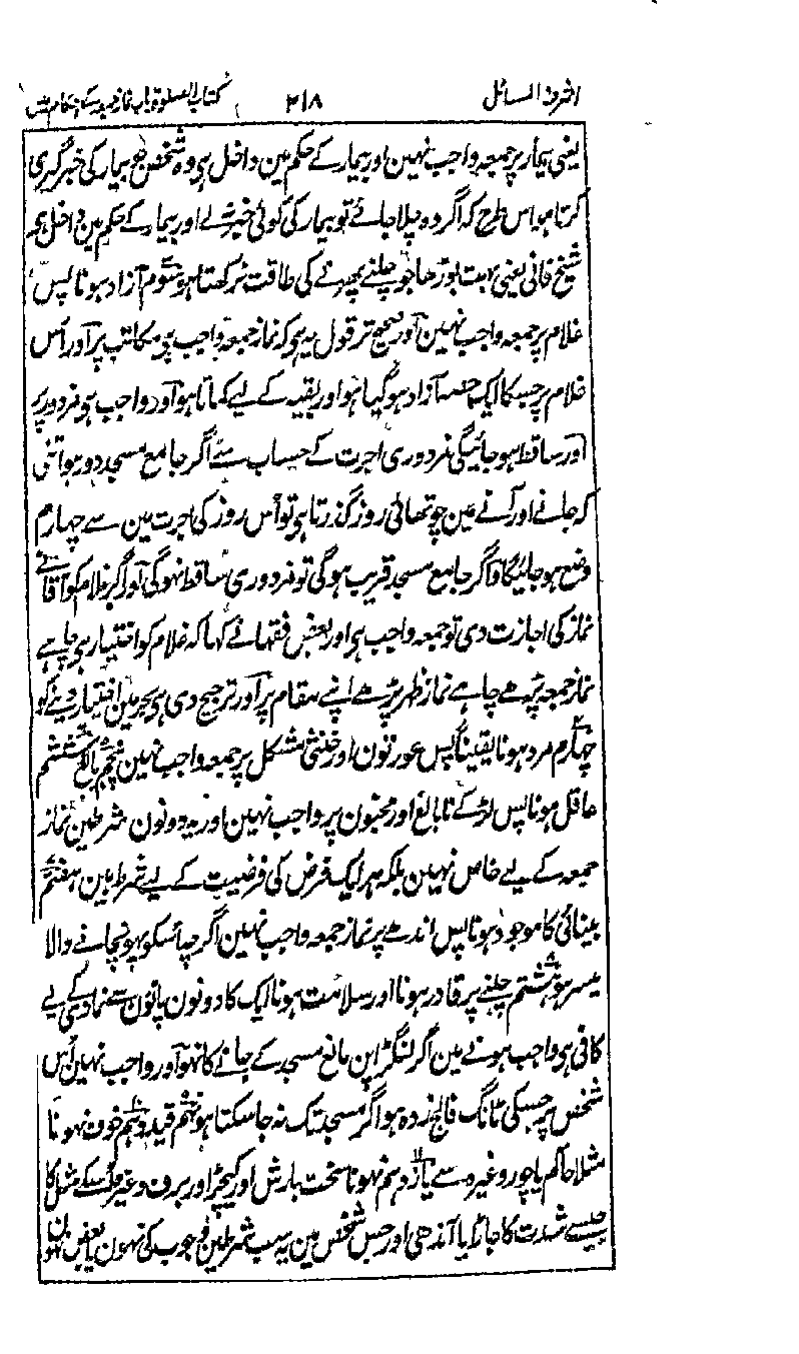 اشرف المسائل ۲۱۸ کتاب الصلوٰۃ باب نماز جمعہ کے احکام میں
یعنی بیمار پر جمعہ واجب نہین اور بیمار کے حکم مین داخل ہی وہ شخص جو بیمار کی خبرگیری
کرتا ہو اس طرح کہ اگر وہ چلا جائے تو بیمار کی کوئی خبر نہ لے اور بیمار کے حکم مین داخل ہی
شیخ فانی یعنی بہت بوڑھا جو چلنے پھرنے کی طاقت نہ رکھتا ہو سوم آزاد ہونا پس
غلام پر جمعہ واجب نہین اور صحیح تر قول یہ ہی کہ نماز جمعہ واجب ہی مکاتب پر اور اُس
غلام پر جسکا ایک حصہ آزاد ہو گیا ہو اور بقیہ کے لیے کماتا ہو اور واجب ہی مزدور پر
اور ساقط ہو جائیگی مزدوری اجرت کے حساب سے اگر جامع مسجد دور ہو اتنی
کہ جانے اور آنے مین چوتھائی روز گذرتا ہی تو اُس روز کی اجرت مین سے چہارم
وضع ہو جائیگا و اگر جامع مسجد قریب ہو گی تو مزدوری ساقط نہو گی اور اگر غلام کو آقا نے
نماز کی اجازت دی تو جمعہ واجب ہی اور بعض فقہا نے کہا کہ غلام کو اختیار ہی چاہے
نماز جمعہ پڑھے چاہے نماز ظہر پڑھے اپنے مقام پر اور ترجیح دی ہی بحر مین اختیار دینے کو
چہارم مرد ہونا یقیناً پس عورتون اور خنثی مشکل پر جمعہ واجب نہین پنجم بالغ ششم
عاقل ہونا پس لڑکے نا بالغ اور مجنون پر واجب نہین اور یہ دونون شرطین نماز
جمعہ کے لیے خاص نہین بلکہ ہر ایک فرض کی فرضیت کے لیے شرط ہین ہفتم
بینائی کا موجود ہونا پس اندھے پر نماز جمعہ واجب نہین اگرچہ اسکو پہونچانے والا
میسر ہو ہشتم چلنے پر قادر ہونا اور سلامت ہونا ایک کا دونون پانون سے نمازی کے لیے
کافی ہی واجب ہونے مین اگر لنگڑاپن مانع مسجد کے جانے کا نہو اور واجب نہین اُس
شخص پر جسکی ٹانگ فالج زدہ ہو اگر مسجد تک نہ جا سکتا ہو نہم قید دہم خوف نہونا
مثلا حاکم یا چور وغیرہ سے یازدہم نہونا سخت بارش اور کیچڑ اور برف وغیرہ کے مثل کا
جیسے شدت کا جاڑا یا آندھی اور جس شخص مین یہ سب شرطین وجوب کی نہون یا بعض نہون